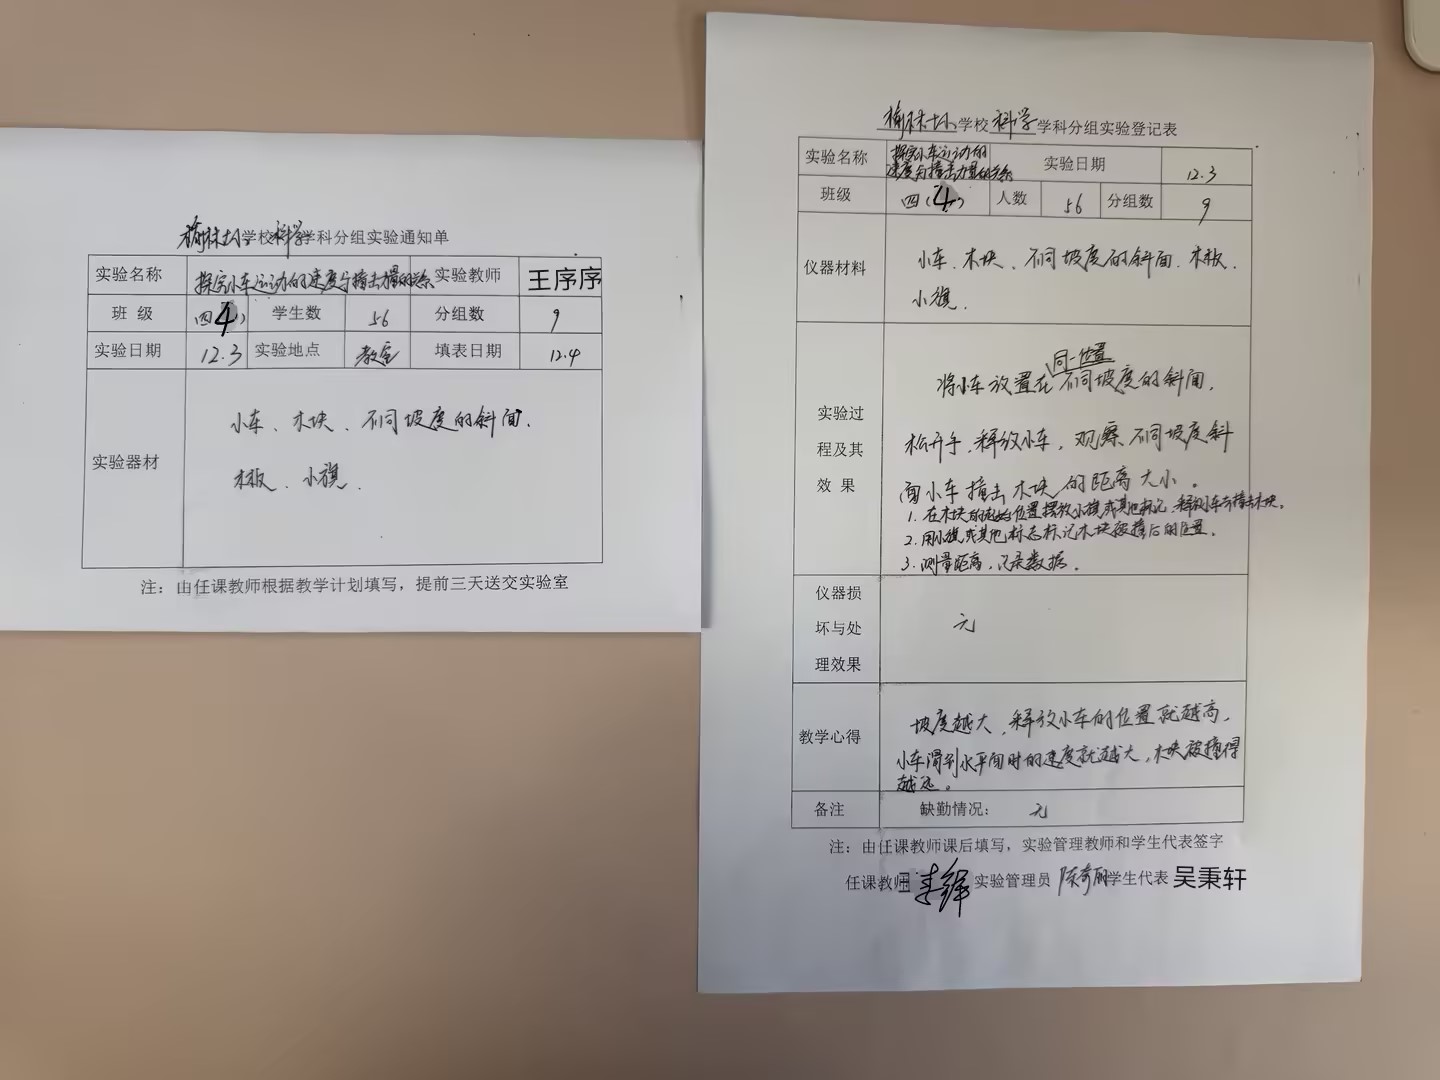 榆林十小学校科学学科分组实验通知单
实验名称 探究小车运动的速度与撞击力量的关系 实验教师 王序序
班 级 四(4) 学生数 56 分组数 9
实验日期 12.3 实验地点 教室 填表日期 12.4
实验器材
小车、木块、不同坡度的斜面.
木板、小旗.
注：由任课教师根据教学计划填写，提前三天送交实验室
榆林十小学校科学学科分组实验登记表
实验名称 探究小车运动的速度与撞击力量的关系 实验日期 12.3
班级 四(4) 人数 56 分组数 9
仪器材料
小车、木块、不同坡度的斜面、木板.
小旗.
实验过程及其效 果
将小车放置在同一位置不同坡度的斜面,
松开手,释放小车,观察不同坡度斜
面小车撞击木块的距离大小。
1.在木块的起始位置摆放小旗或其他标记,释放小车去撞击木块。
2.用小旗或其他标志标记木块被撞后的位置。
3.测量距离,记录数据。
仪器损坏与处理效果
无
教学心得
坡度越大,释放小车的位置就越高,
小车滑到水平面时的速度就越大,木块被撞得
越远。
备注 缺勤情况： 无
注：由任课教师课后填写，实验管理教师和学生代表签字
任课教师 实验管理员 学生代表 吴秉轩